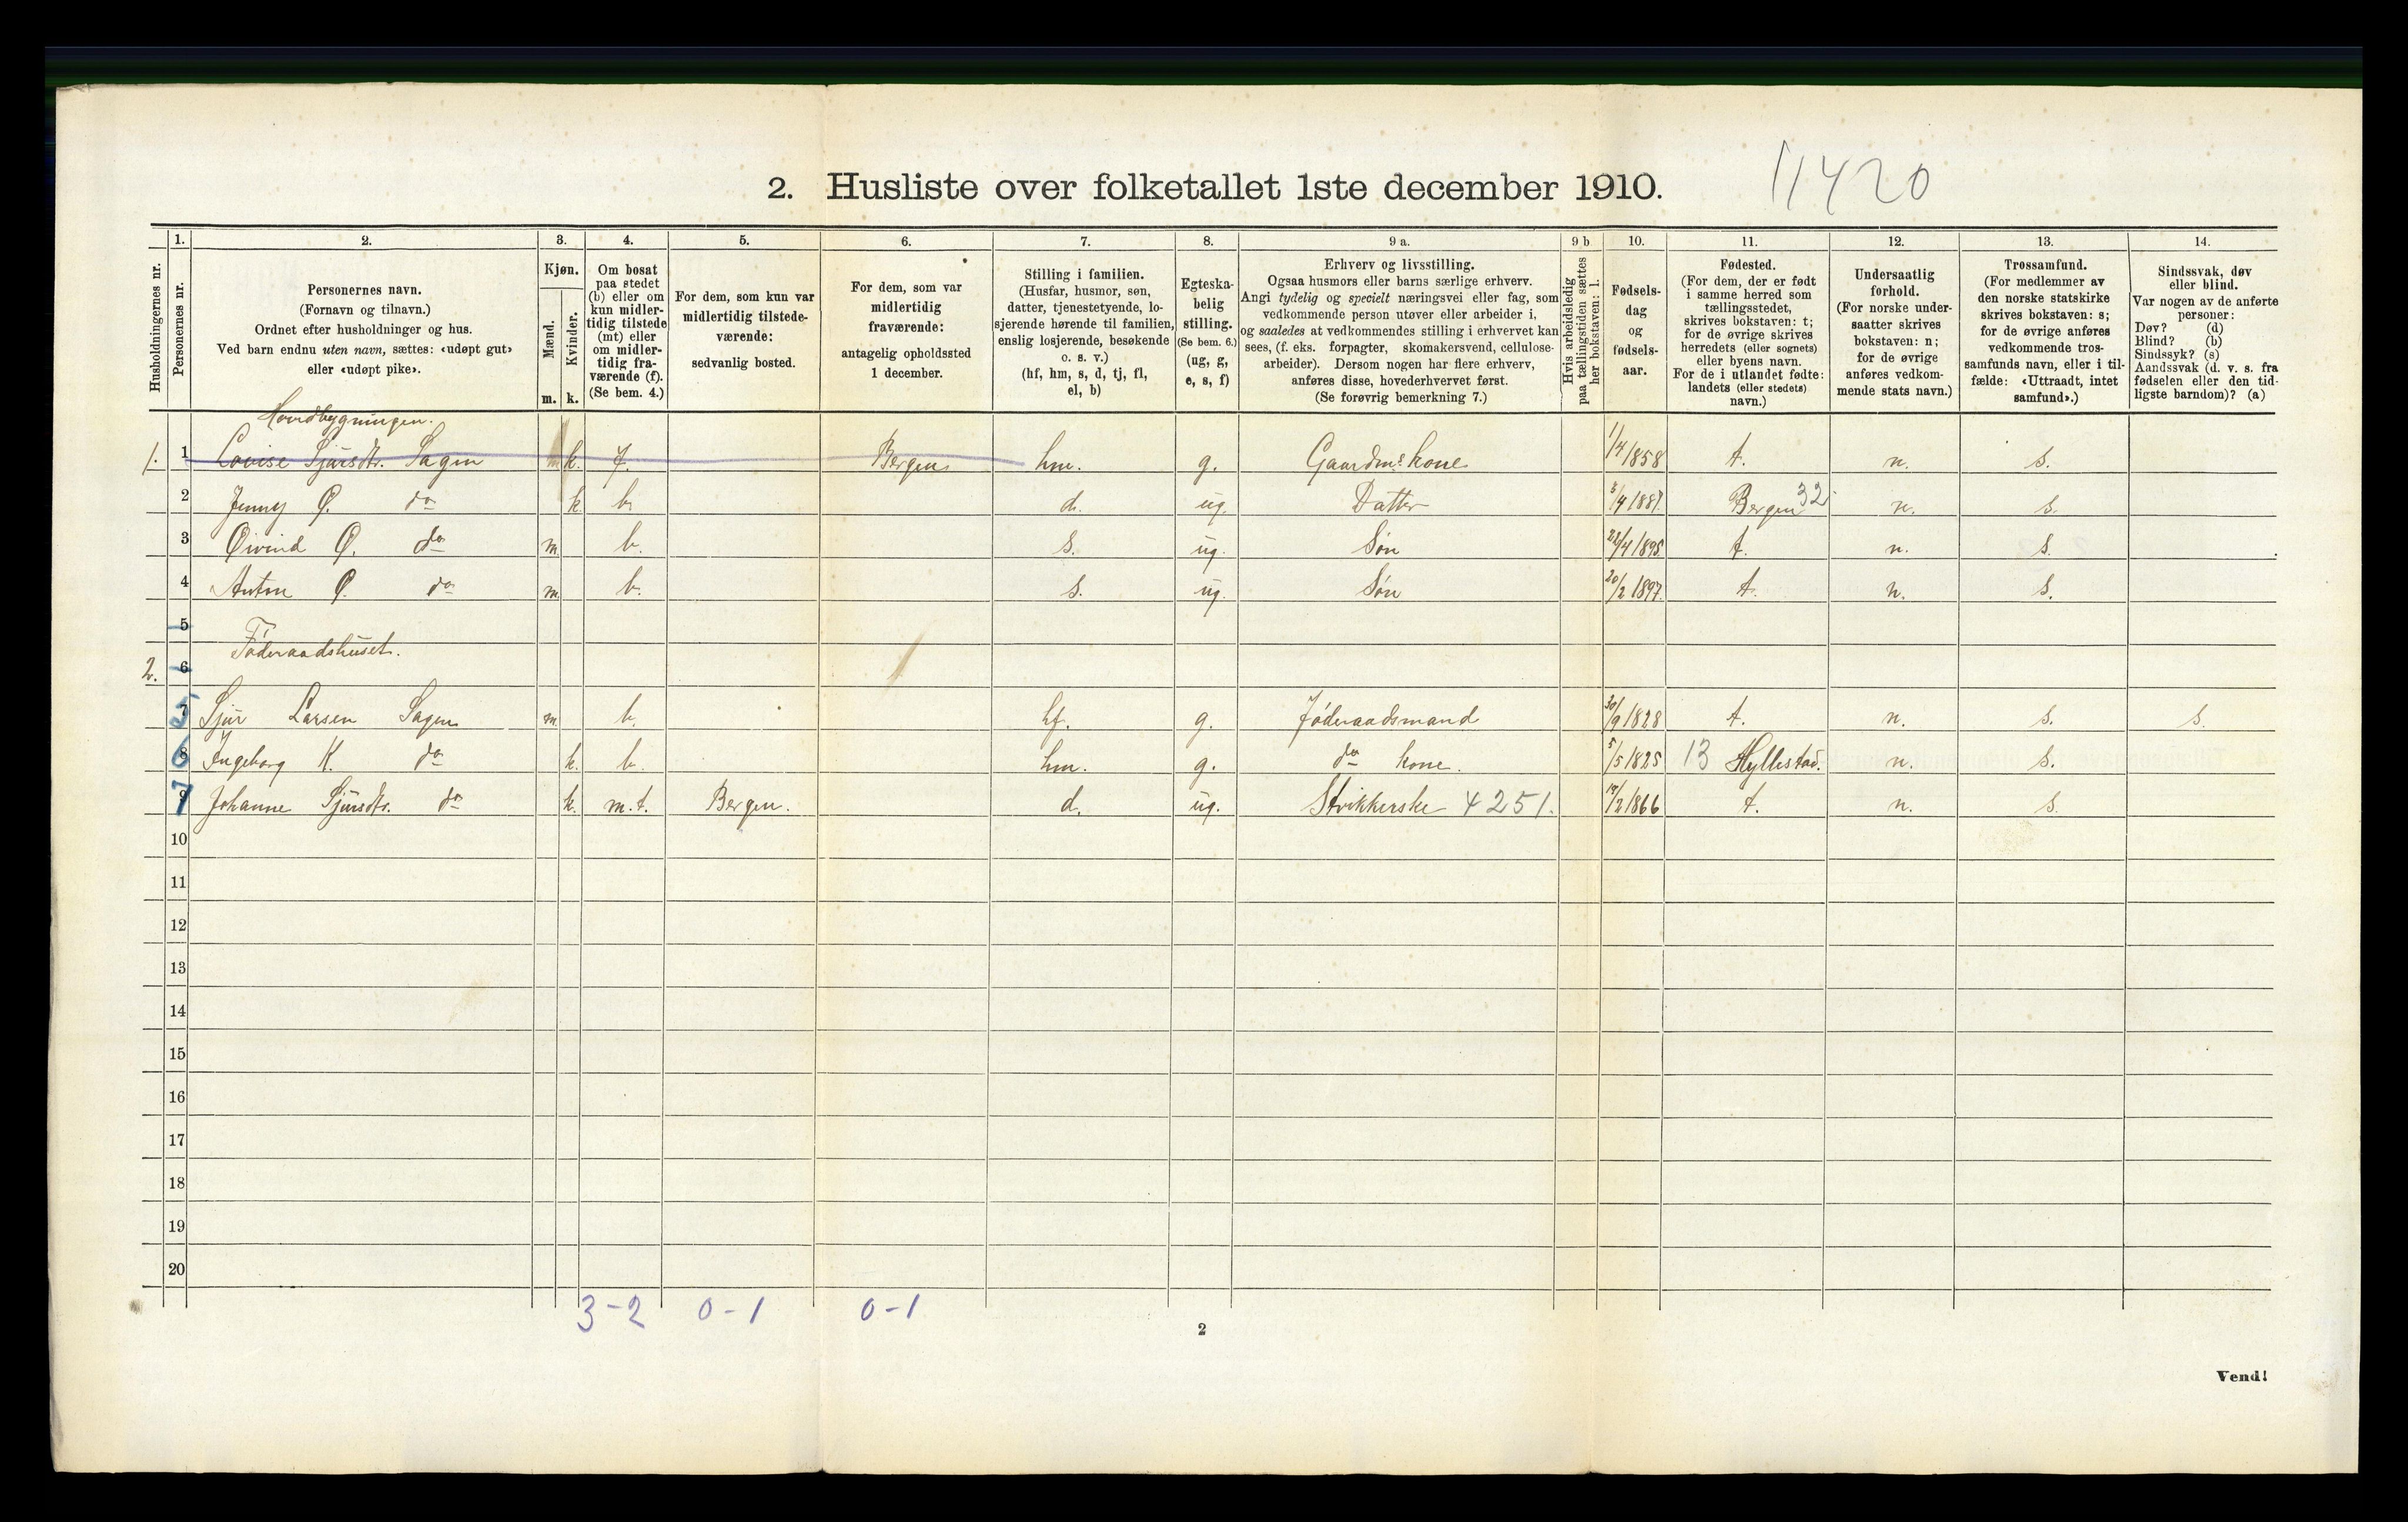 2. Husliste over folketallet 1ste december 1910.
11420
Husholdningernes nr.
1. Personernes nr.
2. Personernes navn.
(Fornavn og tilnavn.)
Ordnet efter husholdninger og hus.
Ved barn endnu uten navn, sættes: «udøpt gut»
eller «udøpt pike».
3. Kjøn.
Mænd. m.
Kvinder. k.
4. Om bosat
paa stedet
(b) eller om
kun midler-
tidig tilstede
(mt) eller
om midler-
tidig fra-
værende (f).
(Se bem. 4.)
5. For dem, som kun var
midlertidig tilstede-
værende:
sedvanlig bosted.
6. For dem, som var
midlertidig
fraværende:
antagelig opholdssted
1 december.
7. Stilling i familien.
(Husfar, husmor, søn,
datter, tjenestetyende, lo-
sjerende hørende til familien,
enslig losjerende, besøkende
o. s. v.)
(hf, hm, s, d, tj, fl,
el, b)
8. Egteska-
belig
stilling.
(Se bem. 6.)
(ug, g,
e, s, f)
9 a. Erhverv og livsstilling.
Ogsaa husmors eller barns særlige erhverv.
Angi tydelig og specielt næringsvei eller fag, som
vedkommende person utøver eller arbeider i,
og saaledes at vedkommendes stilling i erhvervet kan
sees, (f. eks. forpagter, skomakersvend, cellulose-
arbeider). Dersom nogen har flere erhverv,
anføres disse, hovederhvervet først.
(Se forøvrig bemerkning 7.)
9 b Hvis arbeidsledig
paa tællingstiden sættes
her bokstaven: l.
10. Fødsels-
dag
og
fødsels-
aar.
11. Fødested.
(For dem, der er født
i samme herred som
tællingsstedet,
skrives bokstaven: t;
for de øvrige skrives
herredets (eller sognets)
eller byens navn.
For de i utlandet fødte:
landets (eller stedets)
navn.)
12. Undersaatlig
forhold.
(For norske under-
saatter skrives
bokstaven: n;
for de øvrige
anføres vedkom-
mende stats navn.)
13. Trossamfund.
(For medlemmer av
den norske statskirke
skrives bokstaven: s;
for de øvrige anføres
vedkommende tros-
samfunds navn, eller i til-
fælde: «Uttraadt, intet
samfund».)
14. Sindssvak, døv
eller blind.
Var nogen av de anførte
personer:
Døv? (d)
Blind? (b)
Sindssyk? (s)
Aandssvak (d. v. s. fra
fødselen eller den tid-
ligste barndom)? (a)
Hovedbygningen.
1. 1 Lovise Sjursdtr. Sagen k. f. Bergen hm. g. Gaardms kone 1/4 1858 t. n. s.
2 Jenny Ø. do k. b. d. ug. Datter 3/4 1887. Bergen 32 n. s.
3 Øivind Ø. do m. b. s. ug. Søn 22/4 1895 t. n. s.
4 Anton Ø. do m. b. s. ug. Søn 20/2 1897. t. n. s.
5
Føderaadshuset.
2. 6
5 7 Sjur Larsen Sagen m. b. hf. g. Føderaadsmand 30/9 1828 t. n. s. s.
6 8 Ingeborg K. do k. b. hm. g. do kone. 5/5 1825 13 Hyllestad. n. s.
7 9 Johanne Sjursdtr. do k. m.t. Bergen. d. ug. Strikkerske 4251. /2 1866 t. n. s.
10
11
12
13
14
15
16
17
18
19
20
3-2 0-1 0-1
2
Vend!